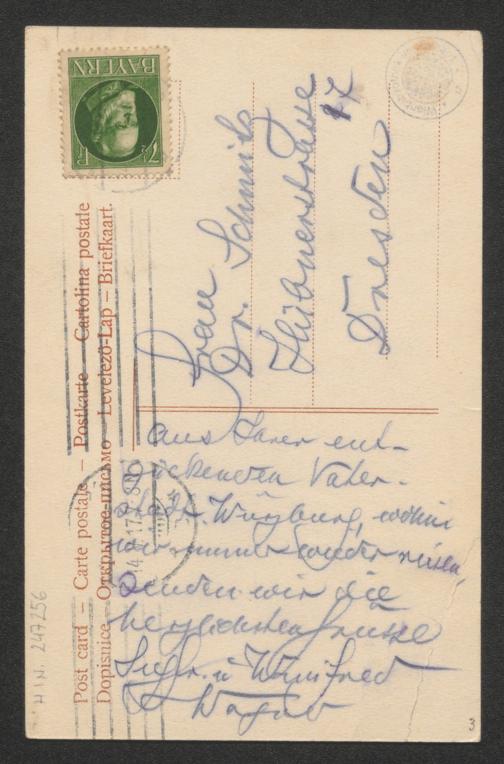 BAYERN
7½
Post card – Carte postale – Postkarte – Cartolina postale
Dopisnice – Открытое письмо – Levelező-Lap – Briefkaart.
Frau
Dr. Schmitz
Hübnerstrasse 17
Dresden
Aus Ihrer ent-
zückenden Vater-
stadt Würzburg, wohin
wir immer wieder reisen,
senden wir die
herzlichsten Grüsse
Siegfr. u Winifred
Wagner
HIN. 247256
3